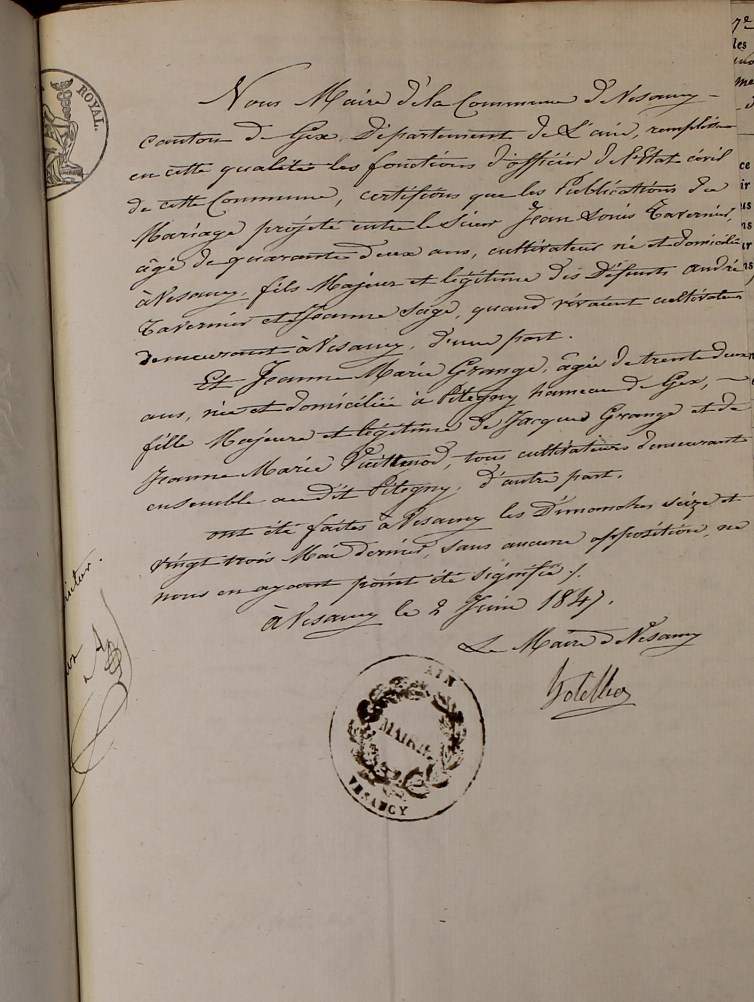 ROYAL.
Nous Maire d'éla Commune d'Vesancy
canton de Gex, Département de L'ain, remplissa
en cette qualité les fonctions d'officier de l'Etat civil
de cette Commune, certifions que les Publications du
Mariage projeté entre le Sieur Jean Louis Tavernier,
âgé de quarante deux ans, cultivateur né et domicilié
à Vesancy, fils Majeur et légitime des Défunts André
Tavernier et Jeanne Sage, quand vivaient cultivateur
demeurant à Vesancy, d'une part.
Et Jeanne Marie Grange, âgée de trente deux
ans, née et domiciliée à Pitegny hameau de Gex,
fille Majeure et légitime de Jacques Grange et de
Jeanne Marie, tous cultivateurs demeurant
ensemble audit Pitegny, d'autre part.
ont été faites à Vesancy les Dimanches seize et
vingt trois Mai dernier, sans aucune opposition, ne
nous en ayant point été signifié /.
à Vesancy le 2 Juin 1847.
Le Maire d'Vesancy
AIN
MAIRIE
VESANCY
7e
les
me
ce
ir
us
ns
ur
ns